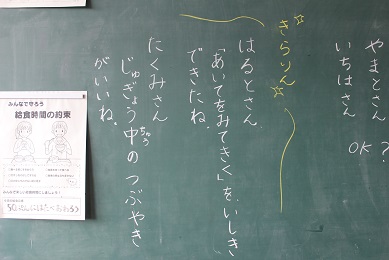 やまとさん
いちはさん
OK?
きらりん
はるとさん
「あいてをみてきく」を いしき
できたね。
たくみさん
じゅぎょう中の つぶやき
ちゅう
がいいね。
みんなで守ろう
給食時間の約束